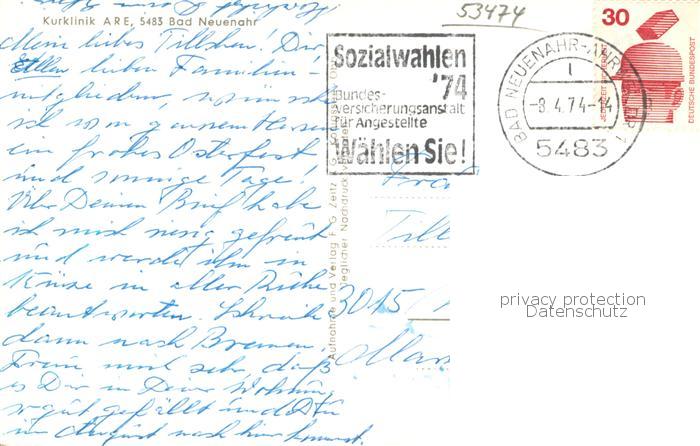 Kurklinik ARE, 5483 Bad Neuenahr
53474
Mein liebes Tillchen! Dir,
allen lieben Familien-
mitgliedern, wünsche
ich von ganzem Herzen
ein frohes Osterfest
und sonnige Tage!
Über Deinen Brief habe
ich mich riesig gefreut
und werde ihn in
Kürze in aller Ruhe
beantworten. Schreibe
dann nach Bremen.
Freue mich sehr, daß
es Dir in Deiner Wohnung
gut gefällt und Du
im August nach hier kommst.
Aufnahme und Verlag F. G. Zeitz
jeglicher Nachdruck verboten
Sozialwahlen
'74
Bundes-
versicherungsanstalt
für Angestellte
Wählen Sie!
BAD NEUENAHR-AHRWEILER 1
-8.4.74-14
5483
30
JEDERZEIT SICHERHEIT
DEUTSCHE BUNDESPOST
Fra
Till
3015
privacy protection
Datenschutz